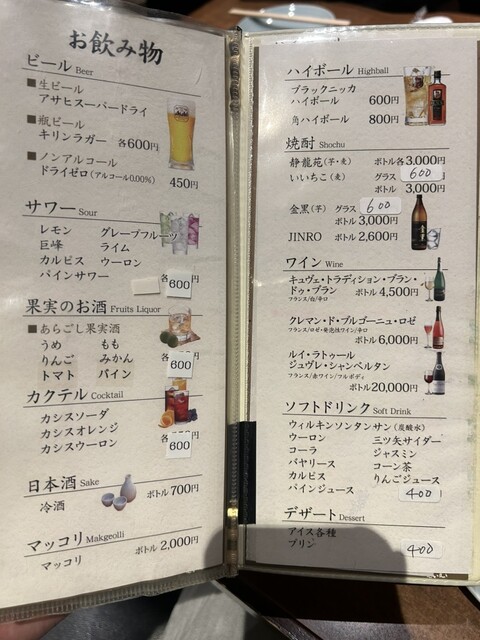 お飲み物
ビール Beer
■生ビール
アサヒスーパードライ
■瓶ビール
キリンラガー 各600円
■ノンアルコール
ドライゼロ(アルコール0.00%) 450円
サワー Sour
レモン グレープフルーツ
巨峰 ライム
カルピス ウーロン
パインサワー
各600円
果実のお酒 Fruits Liquor
■あらごし果実酒
うめ もも
りんご みかん
トマト パイン
各600円
カクテル Cocktail
カシスソーダ
カシスオレンジ
カシスウーロン
各600円
日本酒 Sake
冷酒 ボトル700円
マッコリ Makgeolli
マッコリ ボトル2,000円
ハイボール Highball
ブラックニッカ
ハイボール 600円
角ハイボール 800円
焼酎 Shochu
静龍苑(芋・麦) ボトル各3,000円
いいちこ(麦) グラス 600
ボトル 3,000円
金黒(芋) グラス 600
ボトル 3,000円
JINRO ボトル 2,600円
ワイン Wine
キュヴェ・トラディション・ブラン・
ドゥ・ブラン ボトル 4,500円
フランス/白/辛口
クレマン・ド・ブルゴーニュ・ロゼ
フランス/ロゼ・発泡性ワイン/辛口
ボトル 6,000円
ルイ・ラトゥール
ジュヴレ・シャンベルタン
フランス/赤ワイン/フルボディ
ボトル 20,000円
ソフトドリンク Soft Drink
ウィルキンソンタンサン(炭酸水)
ウーロン 三ツ矢サイダー
コーラ ジャスミン
バヤリース コーン茶
カルピス りんごジュース
パインジュース 400
デザート Dessert
アイス各種
プリン 400